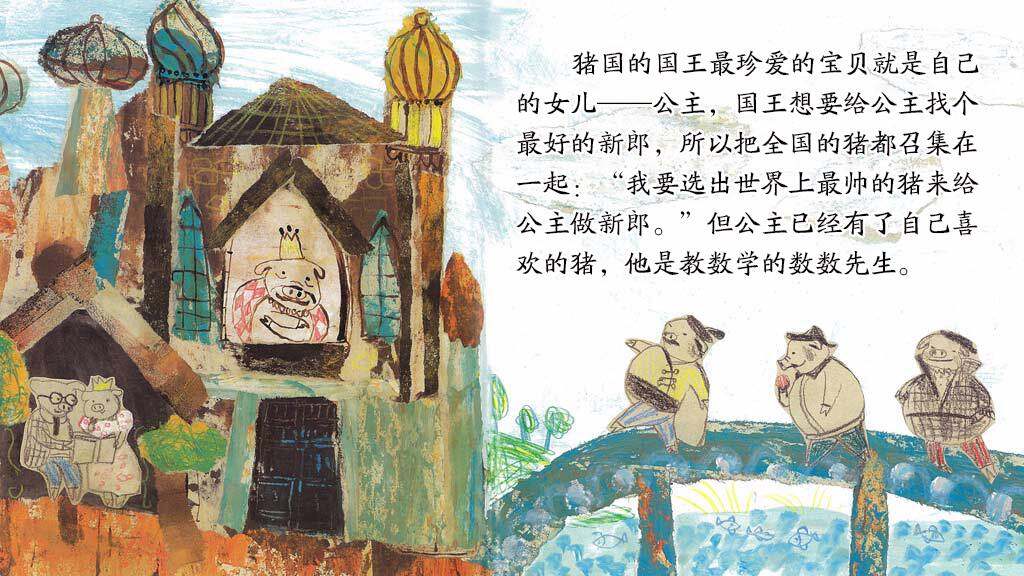 猪国的国王最珍爱的宝贝就是自己
的女儿——公主，国王想要给公主找个
最好的新郎，所以把全国的猪都召集在
一起：“我要选出世界上最帅的猪来给
公主做新郎。”但公主已经有了自己喜
欢的猪，他是教数学的数数先生。